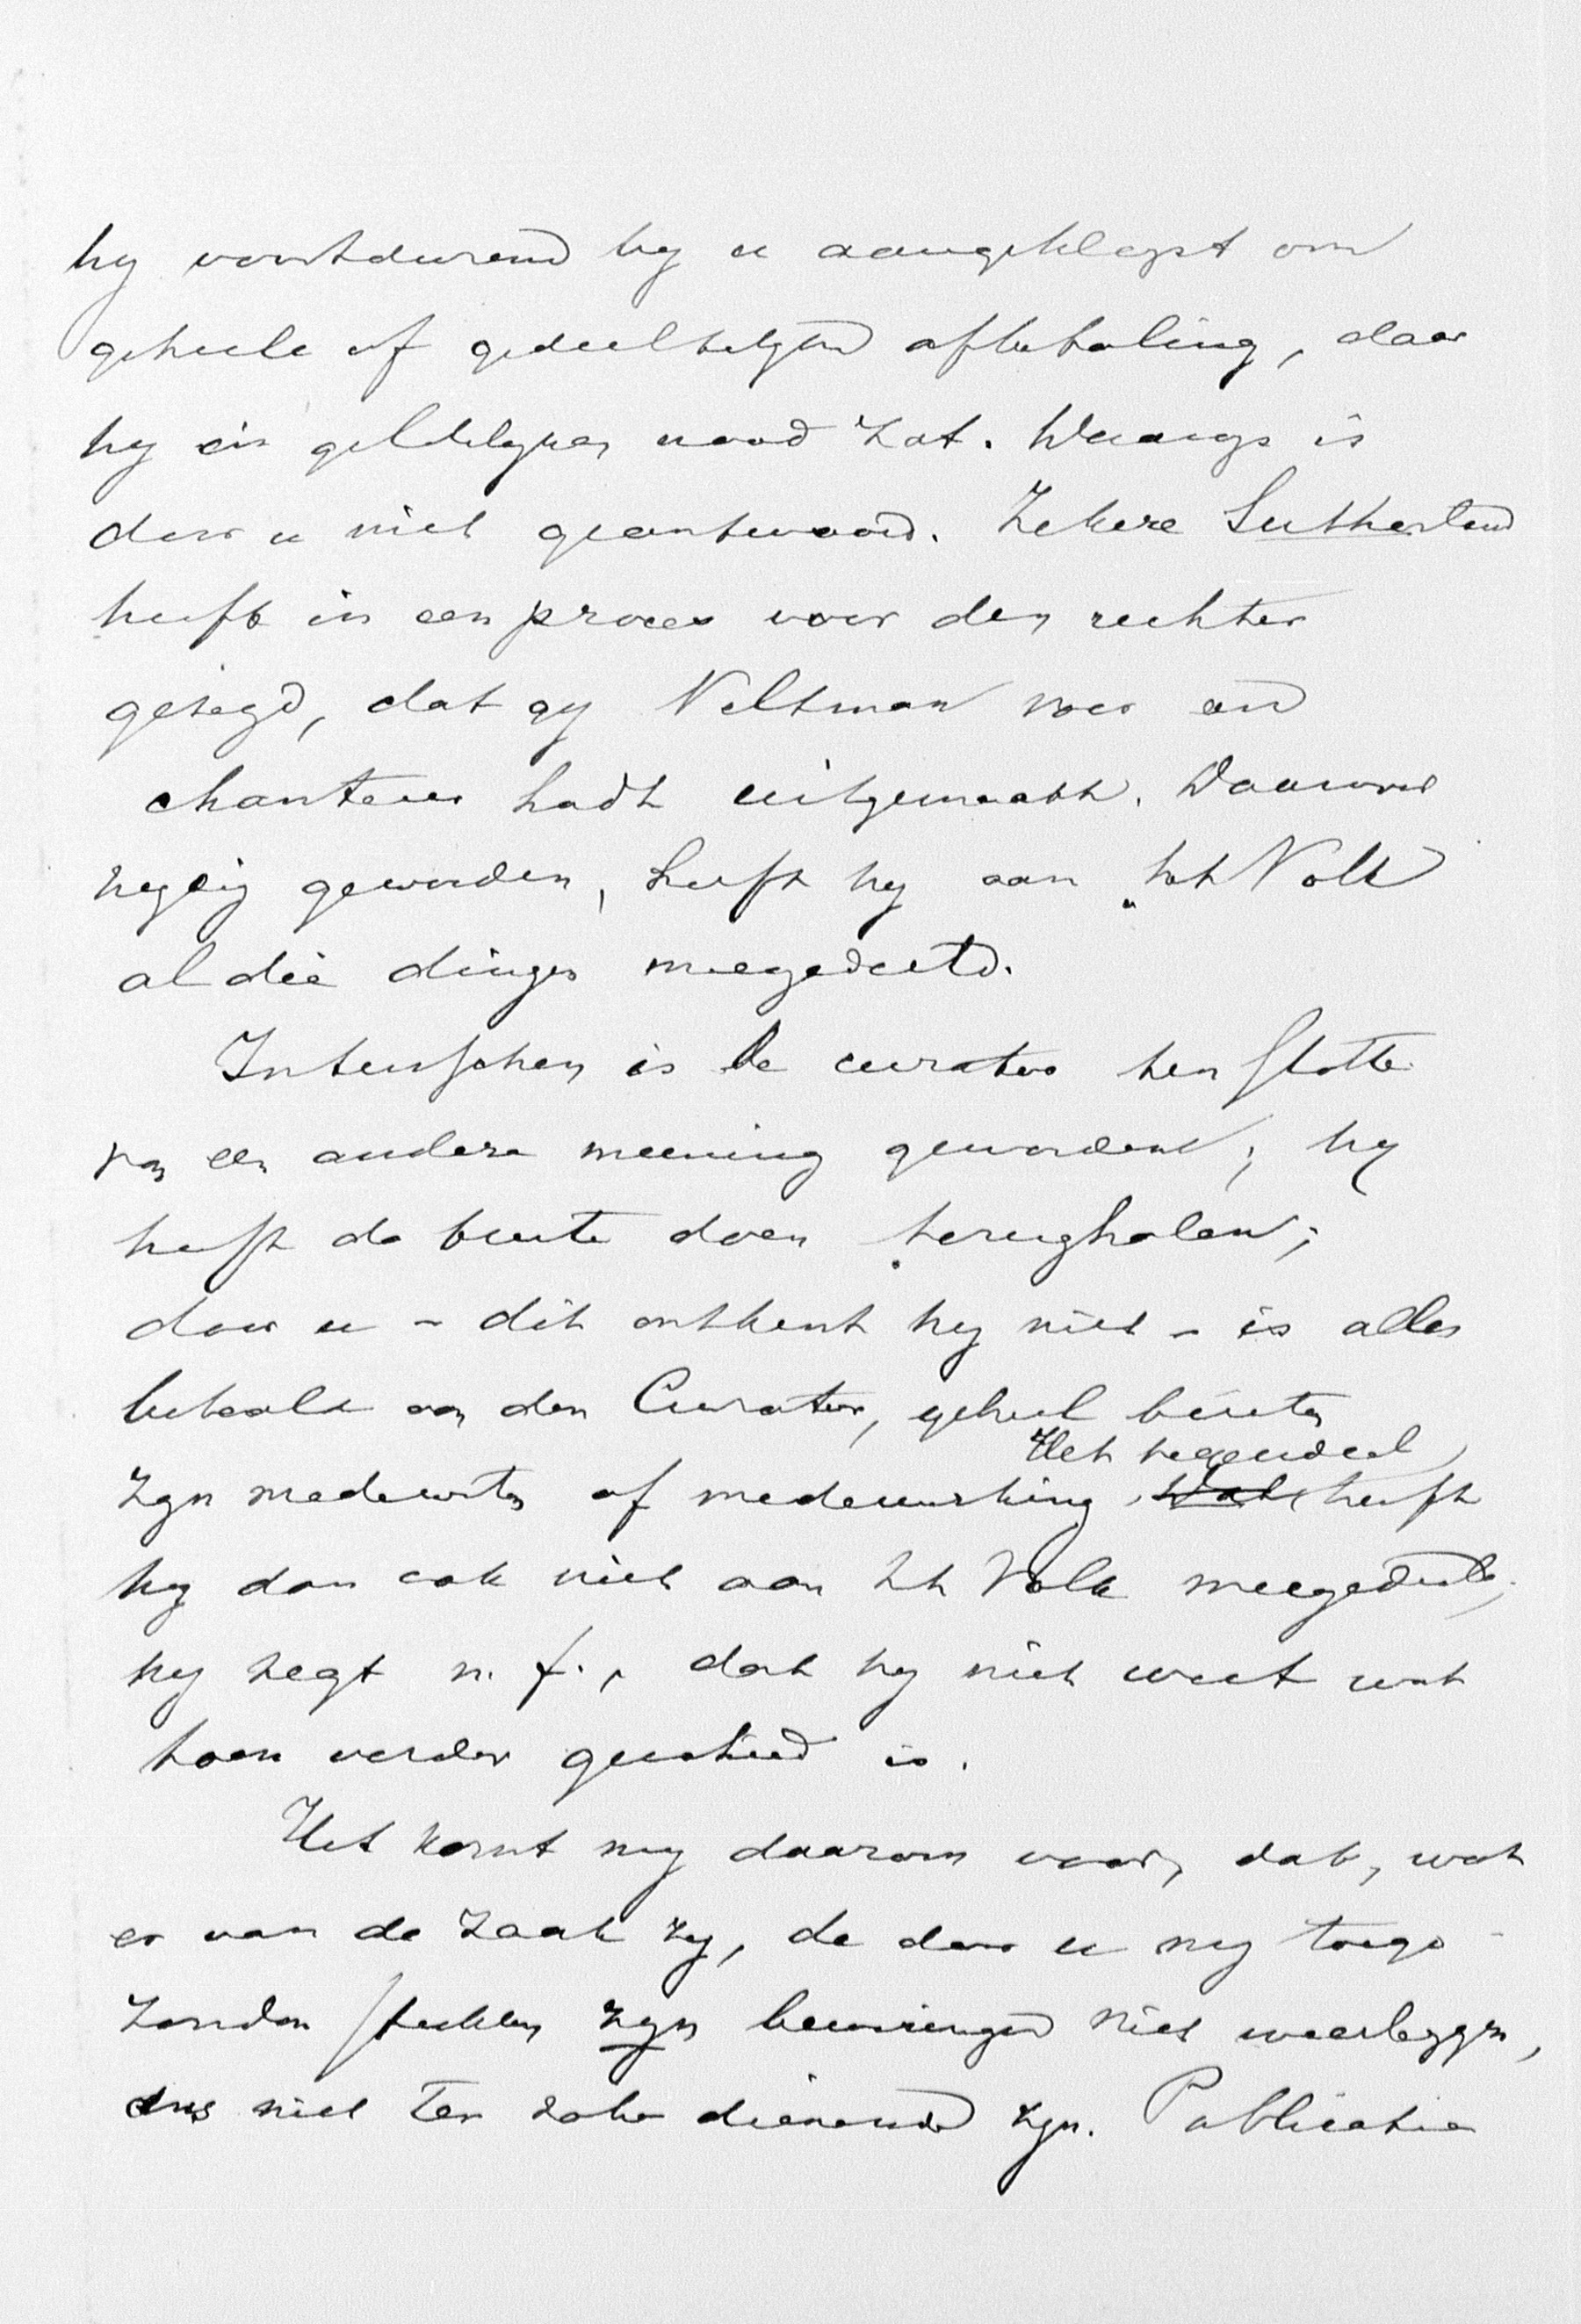 hy voortdurend by u aangeklopt om
geheele of gedeeltelyke afbetaling, daar
hy in geldelyken nood zat. Weinigs is
door u niet geantwoord. Zekere Sutherland
heeft in een proces voor den rechter
gezegd, dat gy Veltman voor een
chanteur hadt uitgemaakt. Daarover
nydig geworden, heeft hy aan „het Volk
al die dingen meegedeeld.
Intusschen is de curator ten slotte
van een andere meening geworden; hy
heeft de buste doen terughalen;
door u – dit ontkent hy niet – is alles
betaald aan den Curator, geheel buiten
Het tegendeel
zyn medeweten of medewerking. Dat heeft
hy dan ook niet aan het Volk meegedeeld;
hy zegt n.f., dat hy niet weet wat
toen verder geschied is.
Het komt my daarom voor, dat, wat
er van de zaak zy, de door u my toege-
zonden stukken zyn beweringen niet weerleggen,
dus niet ter zake dienende zyn. Publicatie